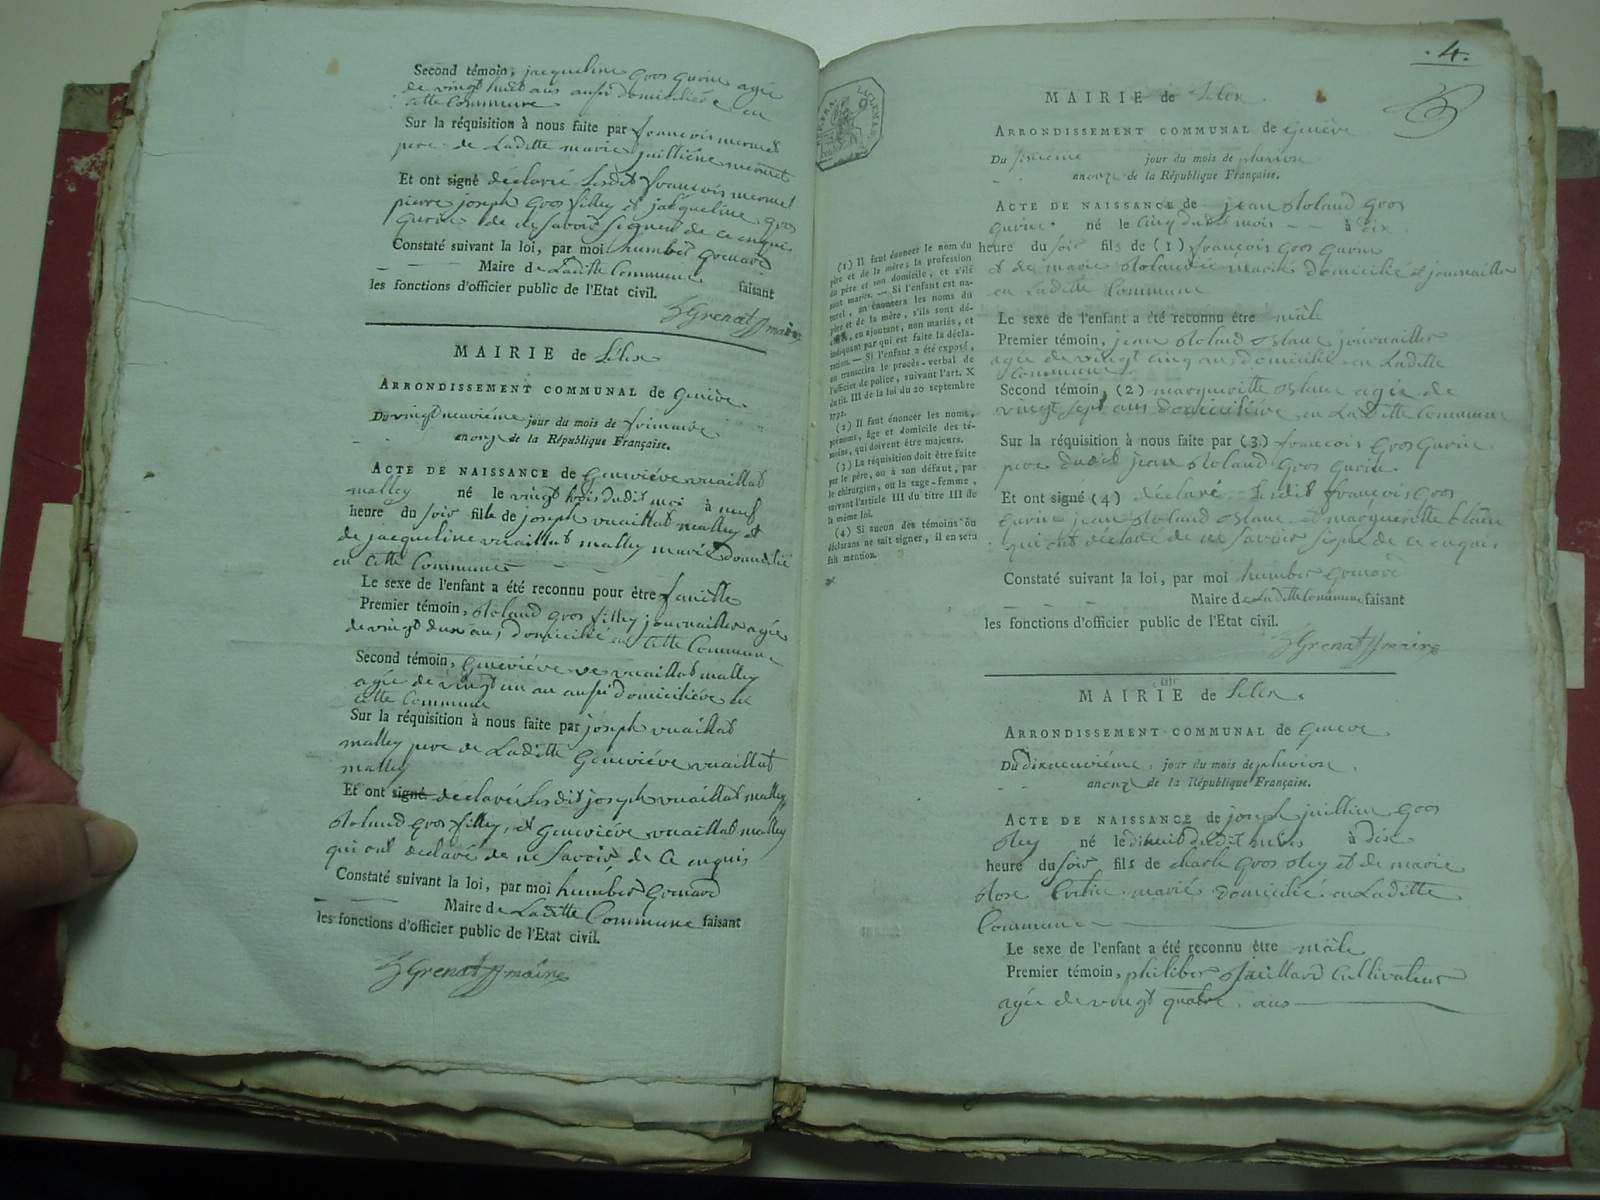 Second témoin, jacqueline gros gurin agée
de vingt huit ans aussi domiciliée en
cette Commune
Sur la réquisition à nous faite par françois mermet
pere de Laditte marie juilliéne mermet
Et ont signé déclaré Lesdit françois mermet
pierre joseph gros filley et jacqueline gros
gurin de ne savoir signer de ce enquis
Constaté suivant la loi, par moi humber grenard
Maire de Laditte Commune faisant
les fonctions d'officier public de l'Etat civil.
h Grenat maire
MAIRIE de Lélex
ARRONDISSEMENT COMMUNAL de Genève
Du vingt neuviéme jour du mois de frimaire
an onze de la République Française.
ACTE DE NAISSANCE de Geneviéve vuaillat
malley né le vingt trois dudit moi à neuf
heure du soir fille de joseph vuaillat malley et
de jacqueline vuaillat malley marié domicilié
en cette Commune
Le sexe de l'enfant a été reconnu pour être femelle
Premier témoin, Roland gros filley journallier agée
de vingt deux ans, domicilié en cette Commune
Second témoin, Geneviéve vuaillat malley
agée de vingt un an aussi domiciliée en
cette Commune
Sur la réquisition à nous faite par joseph vuaillat
malley pere de Laditte Geneviéve vuaillat
malley
Et ont signé declaré Lesdit joseph vuaillat malley
Roland gros filley, et Geneviéve vuaillat malley
qui ont declaré de ne savoir de ce enquis
Constaté suivant la loi, par moi humber grenard
Maire de Laditte Commune faisant
les fonctions d'officier public de l'Etat civil.
h Grenat maire
.4.
MAIRIE de Lelex
ARRONDISSEMENT COMMUNAL de Genève
Du jour du mois de pluviose
an onze de la République Française.
ACTE DE NAISSANCE de jean Roland gros
gurin né le cinq dudit mois à dix
heure du soir fils de (1) françois gros gurin
et de marie marié domicilié et journallier
en Laditte Commune
Le sexe de l'enfant a été reconnu être mâle
Premier témoin, jean Roland journallier
agée de vingt cinq ans, domicilié en Laditte
Commune
Second témoin, (2) margueritte agée de
vingt sept ans domiciliée en Laditte Commune
Sur la réquisition à nous faite par (3) francois gros gurin
pere dudit jean Roland gros gurin
Et ont signé (4) déclaré Lesdit françois gros
gurin jean Roland et marguerette
qui ont déclaré de ne savoir signe de ce enquis
Constaté suivant la loi, par moi humber grenard
Maire de Laditte Commune faisant
les fonctions d'officier public de l'Etat civil.
h Grenat maire
(1) Il faut énoncer le nom du
père et de la mère; la profession
du père et son domicile, et s'ils
sont mariés. — Si l'enfant est na-
turel, on énoncera les noms du
père et de la mère, s'ils sont dé-
en ajoutant, non mariés, et
indiquant par qui est faite la décla-
ration. — Si l'enfant a été exposé,
on transcrira le procès-verbal de
l'officier de police, suivant l'art. X
du tit. III de la loi du 20 septembre
1792.
(2) Il faut énoncer les noms,
prénoms, âge et domicile des té-
moins, qui doivent être majeurs.
(3) La réquisition doit être faite
par le père, ou à son défaut, par
le chirurgien, ou la sage-femme,
suivant l'article III du titre III de
la même loi.
(4) Si aucun des témoins ou
déclarans ne sait signer, il en sera
fait mention.
MAIRIE de Lelex
ARRONDISSEMENT COMMUNAL de Geneve
Du dixneuviéme jour du mois de pluviose
an onze de la République Française.
ACTE DE NAISSANCE de joseph juillien gros
né le dixuit dudit mois à dix
heure du soir fils de charle gros et de marie
Rose marié domicilié en Laditte
Commune
Le sexe de l'enfant a été reconnu être mâle
Premier témoin, philiber cultivateur
agée de vingt quatre ans